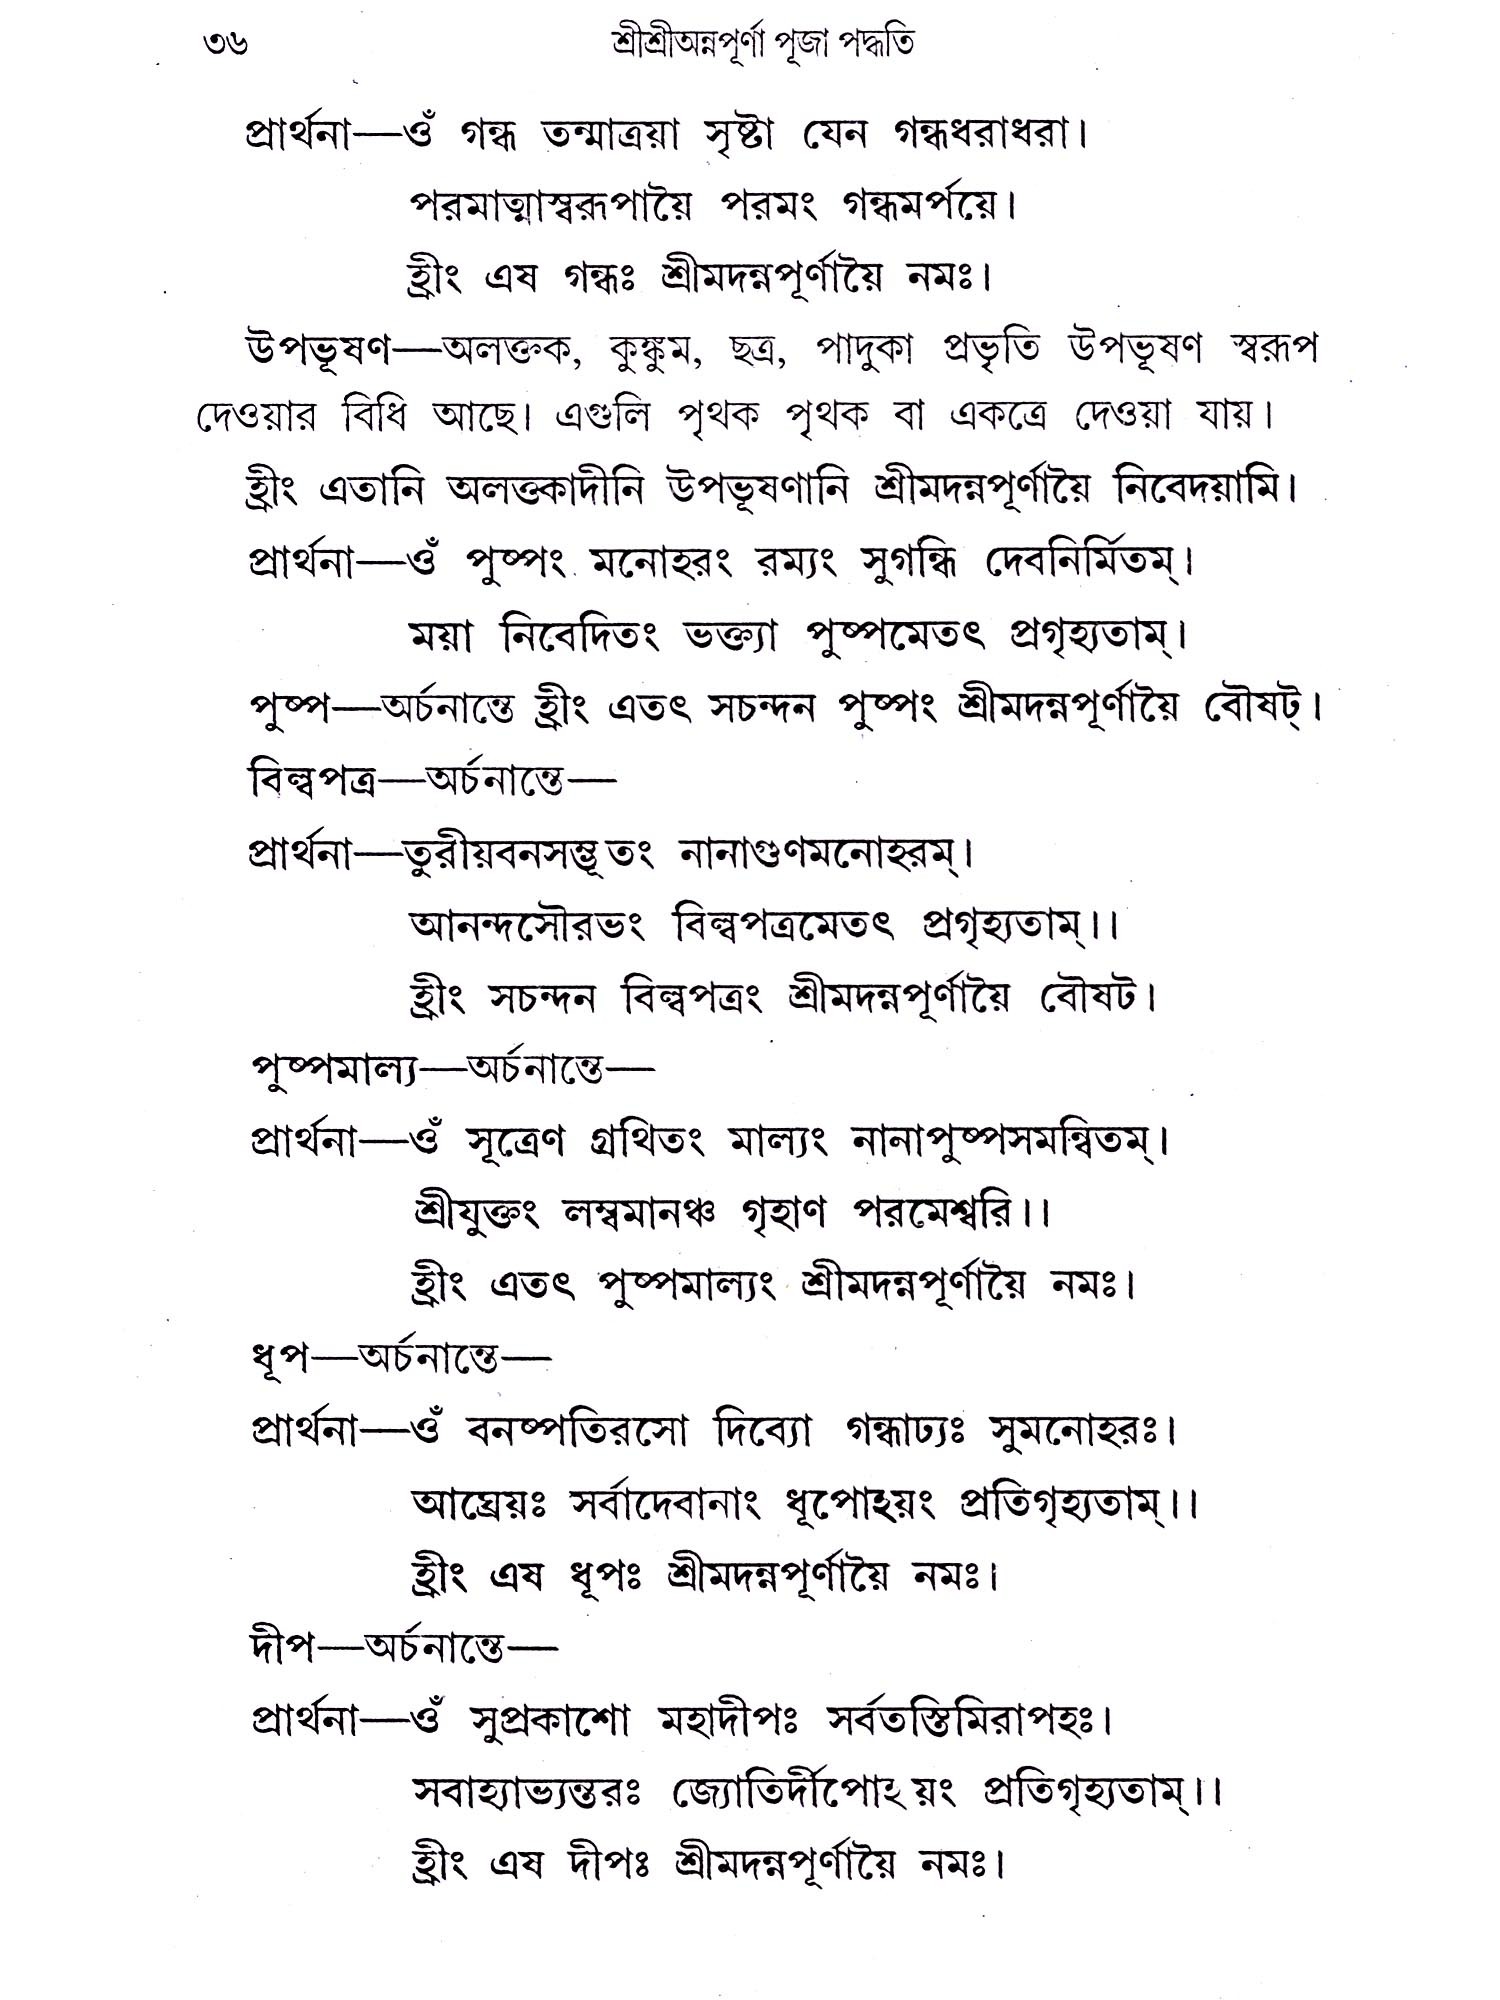 ৩৬ শ্রীশ্রীঅন্নপূর্ণা পূজা পদ্ধতি
প্রার্থনা—ওঁ গন্ধ তন্মাত্রয়া সৃষ্টা যেন গন্ধধরাধরা।
পরমাত্মাস্বরূপায়ৈ পরমং গন্ধমর্পয়ে।
হ্রীং এষ গন্ধঃ শ্রীমদন্নপূর্ণায়ৈ নমঃ।
উপভূষণ—অলক্তক, কুঙ্কুম, ছত্র, পাদুকা প্রভৃতি উপভূষণ স্বরূপ
দেওয়ার বিধি আছে। এগুলি পৃথক পৃথক বা একত্রে দেওয়া যায়।
হ্রীং এতানি অলক্তকাদীনি উপভূষণানি শ্রীমদন্নপূর্ণায়ৈ নিবেদয়ামি।
প্রার্থনা—ওঁ পুষ্পং মনোহরং রম্যং সুগন্ধি দেবনির্মিতম্।
ময়া নিবেদিতং ভক্ত্যা পুষ্পমেতৎ প্রগৃহ্যতাম্।
পুষ্প—অর্চনান্তে হ্রীং এতৎ সচন্দন পুষ্পং শ্রীমদন্নপূর্ণায়ৈ বৌষট্।
বিল্বপত্র—অর্চনান্তে—
প্রার্থনা—তুরীয়বনসম্ভূতং নানাগুণমনোহরম্।
আনন্দসৌরভং বিল্বপত্রমেতৎ প্রগৃহ্যতাম্।।
হ্রীং সচন্দন বিল্বপত্রং শ্রীমদন্নপূর্ণায়ৈ বৌষট।
পুষ্পমাল্য—অর্চনান্তে—
প্রার্থনা—ওঁ সূত্রেণ গ্রথিতং মাল্যং নানাপুষ্পসমন্বিতম্।
শ্রীযুক্তং লম্বমানঞ্চ গৃহাণ পরমেশ্বরি।।
হ্রীং এতৎ পুষ্পমাল্যং শ্রীমদন্নপূর্ণায়ৈ নমঃ।
ধূপ—অর্চনান্তে—
প্রার্থনা—ওঁ বনষ্পতিরসো দিব্যো গন্ধাঢ্যঃ সুমনোহরঃ।
আঘ্রেয়ঃ সর্বাদেবানাং ধূপোঽয়ং প্রতিগৃহ্যতাম্।।
হ্রীং এষ ধূপঃ শ্রীমদন্নপূর্ণায়ৈ নমঃ।
দীপ—অর্চনান্তে—
প্রার্থনা—ওঁ সুপ্রকাশো মহাদীপঃ সর্বতস্তিমিরাপহঃ।
সবাহ্যাভ্যন্তরঃ জ্যোতির্দীপোঽয়ং প্রতিগৃহ্যতাম্।।
হ্রীং এষ দীপঃ শ্রীমদন্নপূর্ণায়ৈ নমঃ।